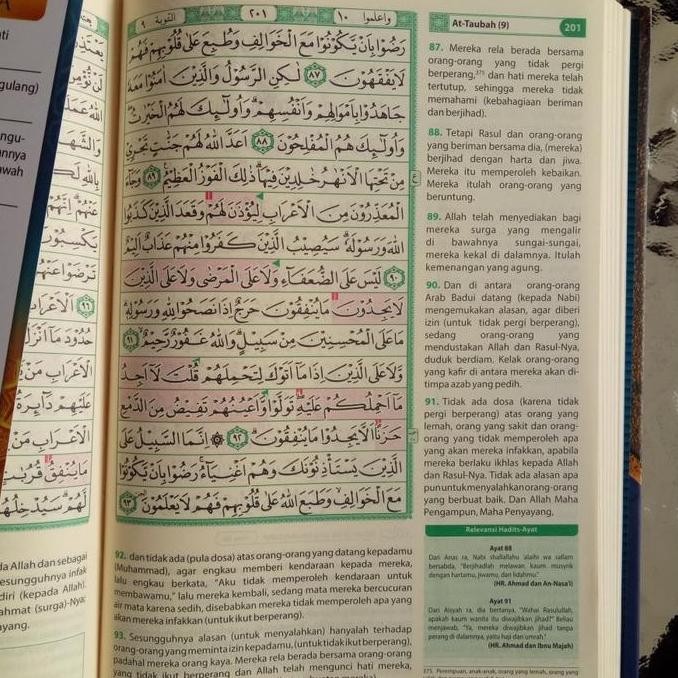 التوبة ٩
٢٠١
واعلموا ١٠
رَضُوْا بِاَنْ يَّكُوْنُوْا مَعَ الْخَوَالِفِ وَطُبِعَ عَلٰى قُلُوْبِهِمْ فَهُمْ
لَا يَفْقَهُوْنَ ٨٧ لٰكِنِ الرَّسُوْلُ وَالَّذِيْنَ اٰمَنُوْا مَعَهٗ
جَاهَدُوْا بِاَمْوَالِهِمْ وَاَنْفُسِهِمْۗ وَاُولٰۤىِٕكَ لَهُمُ الْخَيْرٰتُ
وَاُولٰۤىِٕكَ هُمُ الْمُفْلِحُوْنَ ٨٨ اَعَدَّ اللّٰهُ لَهُمْ جَنّٰتٍ تَجْرِيْ
مِنْ تَحْتِهَا الْاَنْهٰرُ خٰلِدِيْنَ فِيْهَاۗ ذٰلِكَ الْفَوْزُ الْعَظِيْمُ ٨٩ وَجَاۤءَ
الْمُعَذِّرُوْنَ مِنَ الْاَعْرَابِ لِيُؤْذَنَ لَهُمْ وَقَعَدَ الَّذِيْنَ كَذَبُوا
اللّٰهَ وَرَسُوْلَهٗۗ سَيُصِيْبُ الَّذِيْنَ كَفَرُوْا مِنْهُمْ عَذَابٌ اَلِيْمٌ
٩٠ لَيْسَ عَلَى الضُّعَفَاۤءِ وَلَا عَلَى الْمَرْضٰى وَلَا عَلَى الَّذِيْنَ
لَا يَجِدُوْنَ مَا يُنْفِقُوْنَ حَرَجٌ اِذَا نَصَحُوْا لِلّٰهِ وَرَسُوْلِهٖۗ
مَا عَلَى الْمُحْسِنِيْنَ مِنْ سَبِيْلٍۗ وَاللّٰهُ غَفُوْرٌ رَّحِيْمٌ ٩١
وَّلَا عَلَى الَّذِيْنَ اِذَا مَآ اَتَوْكَ لِتَحْمِلَهُمْ قُلْتَ لَآ اَجِدُ
مَآ اَحْمِلُكُمْ عَلَيْهِۖ تَوَلَّوْا وَّاَعْيُنُهُمْ تَفِيْضُ مِنَ الدَّمْعِ
حَزَنًا اَلَّا يَجِدُوْا مَا يُنْفِقُوْنَۗ ٩٢ ۞ اِنَّمَا السَّبِيْلُ عَلَى
الَّذِيْنَ يَسْتَأْذِنُوْنَكَ وَهُمْ اَغْنِيَاۤءُۚ رَضُوْا بِاَنْ يَّكُوْنُوْا
مَعَ الْخَوَالِفِۙ وَطَبَعَ اللّٰهُ عَلٰى قُلُوْبِهِمْ فَهُمْ لَا يَعْلَمُوْنَ ٩٣
92. dan tidak ada (pula dosa) atas orang-orang yang datang kepadamu
(Muhammad), agar engkau memberi kendaraan kepada mereka,
lalu engkau berkata, "Aku tidak memperoleh kendaraan untuk
membawamu," lalu mereka kembali, sedang mata mereka bercucuran
air mata karena sedih, disebabkan mereka tidak memperoleh apa yang
akan mereka infakkan (untuk ikut berperang).
93. Sesungguhnya alasan (untuk menyalahkan) hanyalah terhadap
orang-orang yang meminta izin kepadamu, (untuk tidak ikut berperang),
padahal mereka orang kaya. Mereka rela berada bersama orang-orang
yang tidak ikut berperang dan Allah telah mengunci hati mereka,
At-Taubah (9)
201
87. Mereka rela berada bersama
orang-orang yang tidak pergi
berperang,375 dan hati mereka telah
tertutup, sehingga mereka tidak
memahami (kebahagiaan beriman
dan berjihad).
88. Tetapi Rasul dan orang-orang
yang beriman bersama dia, (mereka)
berjihad dengan harta dan jiwa.
Mereka itu memperoleh kebaikan.
Mereka itulah orang-orang yang
beruntung.
89. Allah telah menyediakan bagi
mereka surga yang mengalir
di bawahnya sungai-sungai,
mereka kekal di dalamnya. Itulah
kemenangan yang agung.
90. Dan di antara orang-orang
Arab Badui datang (kepada Nabi)
mengemukakan alasan, agar diberi
izin (untuk tidak pergi berperang),
sedang orang-orang yang
mendustakan Allah dan Rasul-Nya,
duduk berdiam. Kelak orang-orang
yang kafir di antara mereka akan di-
timpa azab yang pedih.
91. Tidak ada dosa (karena tidak
pergi berperang) atas orang yang
lemah, orang yang sakit dan orang-
orang yang tidak memperoleh apa
yang akan mereka infakkan, apabila
mereka berlaku ikhlas kepada Allah
dan Rasul-Nya. Tidak ada alasan apa
pun untuk menyalahkan orang-orang
yang berbuat baik. Dan Allah Maha
Pengampun, Maha Penyayang,
Relevansi Hadits-Ayat
Ayat 88
Dari Anas ra, Nabi shallallahu 'alaihi wa sallam
bersabda, "Berjihadlah melawan kaum musyrik
dengan hartamu, jiwamu, dan lidahmu."
(HR. Ahmad dan An-Nasa'i)
Ayat 91
Dari Aisyah ra, dia bertanya, "Wahai Rasulullah,
apakah kaum wanita itu diwajibkan jihad?" Beliau
menjawab, "Ya, mereka diwajibkan jihad tanpa
perang di dalamnya, yaitu haji dan umrah."
(HR. Ahmad dan Ibnu Majah)
375. Perempuan, anak-anak, orang yang lemah, orang yang